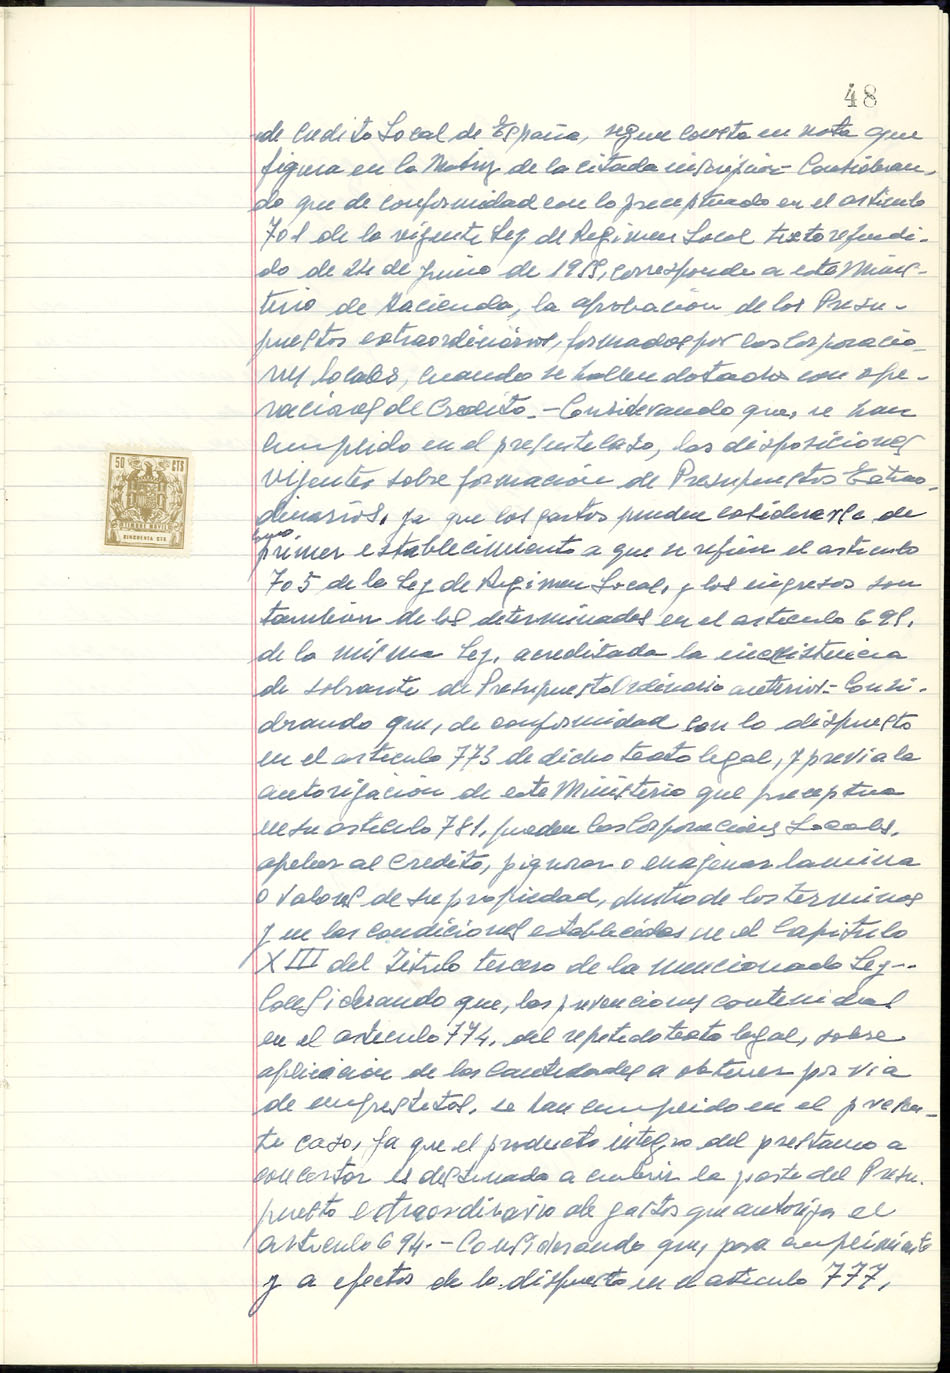 48
de Credito Local de España, segun consta en nota que
figura en la Matriz de la citada inscripcion - Consideran-
do que de conformidad con lo preceptuado en el articulo
701 de la vigente Ley de Regimen Local texto refundi-
do de 24 de Junio de 1955, corresponde a este Minis-
terio de Hacienda, la aprobacion de los Presu-
puestos extraordinarios, formados por las Corporacio-
nes locales, cuando se hallen dotados con ope-
raciones de Credito. - Considerando que, se han
cumplido en el presente caso, las disposiciones
vigentes sobre formacion de Presupuestos Extraor-
dinarios, ya que los gastos pueden considerarse de
primer establecimiento a que se refiere el articulo
705 de la Ley de Regimen Local, y los ingresos son
tambien de los determinados en el articulo 695,
de la misma Ley, acreditada la inexistencia
de sobrante de Presupuesto Ordinario anterior - Consi-
derando que, de conformidad con lo dispuesto
en el articulo 773 de dicho texto legal, y previa la
autorizacion de este Ministerio que preceptua
en su articulo 781, pueden las Corporaciones Locales,
apelar al Credito, pignorar o enajenar lamina
o valores de su propiedad, dentro de los terminos
y en las condiciones establecidas en el Capitulo
XIII del Titulo tercero de la mencionada Ley --
Considerando que, las prevenciones contenidas
en el articulo 774, del repetido texto legal, sobre
aplicacion de las Cantidades a obtener por via
de emprestitos, se han cumplido en el presen-
te caso, ya que el producto integro del prestamo a
concertar es destinado a cubrir la parte del Presu-
puesto extraordinario de gastos que autoriza el
articulo 694. - Considerando que, para cumplimiento
y a efectos de lo dispuesto en el articulo 777,
50 CTS
TIMBRE MOVIL
CINCUENTA CTS